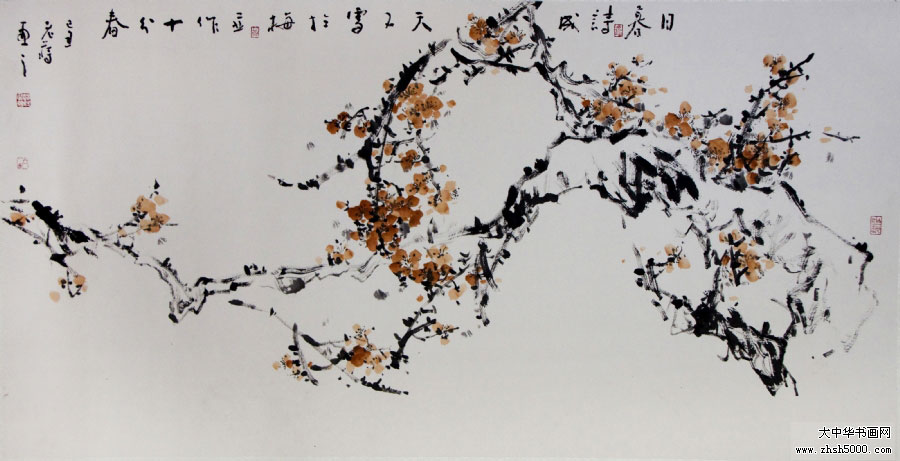 日暮詩成天又雪於梅並作十分春
大中华书画网
www.zhsh5000.com